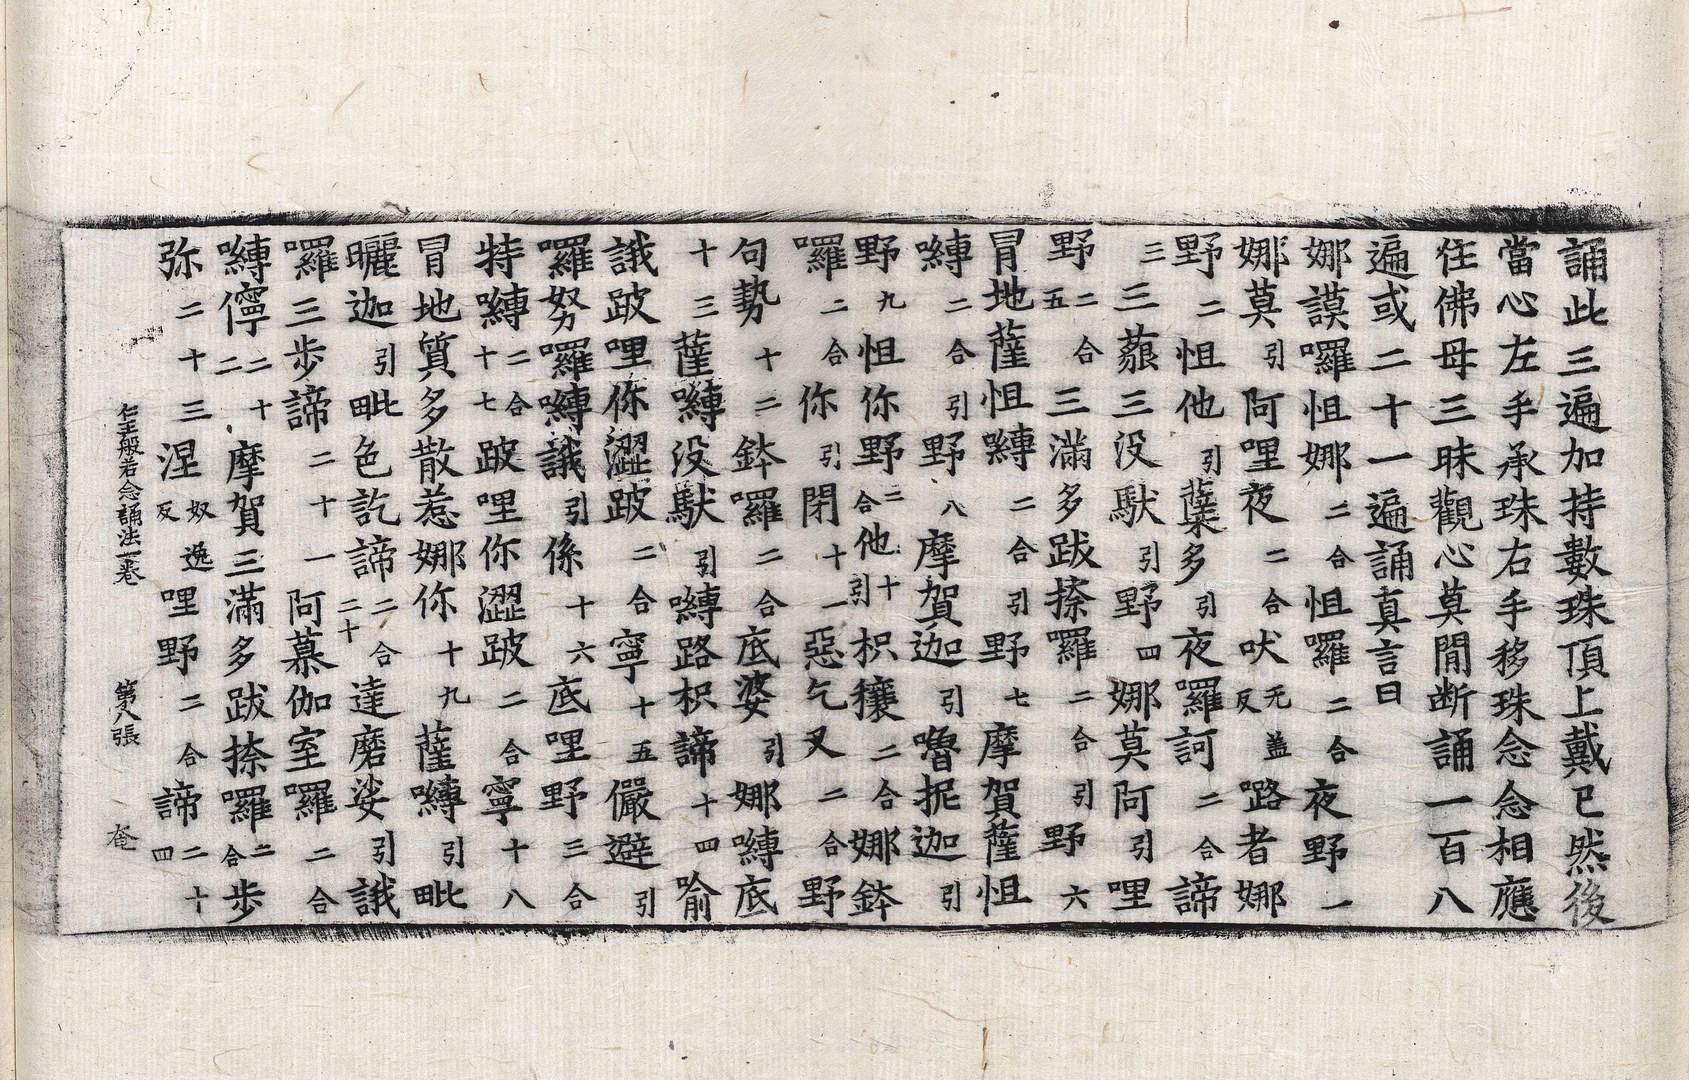 誦此三遍加持數珠頂上戴已然後
當心左手承珠右手移珠念念相應
住佛母三昧觀心莫間断誦一百八
遍或二十一遍誦真言曰
娜謨囉怛娜二合怛囉二合夜野一
娜莫引阿哩夜二合吠无蓋反路者娜
野二怛他引蘖多引夜囉訶二合諦
三三藐三没馱引野四娜莫阿引哩
野二合五三滿多跋捺囉二合引野六
冒地薩怛嚩二合引野七摩賀薩怛
嚩二合引野八摩賀迦引嚕抳迦引
野九怛你野二合他引十枳穰二合娜鉢
囉二合你引閉十一惡乞叉二合野
句勢十二鉢囉二合底婆引娜嚩底
十三薩嚩没馱引嚩路枳諦十四喻
誐跛哩你澀跛二合寧十五儼避引
囉努囉嚩誐引係十六底哩野三合
特嚩二合十七跛哩你澀跛二合寧十八
冒地質多散惹娜你十九薩嚩引毗
曬迦引毗色訖諦二合二十達磨娑引誐
囉三步諦二十一阿慕伽室囉二合
嚩儜二十二摩賀三滿多跋捺囉二合步
弥二十三涅奴逸反哩野二合諦二十四
仁王般若念誦法一卷 第八張